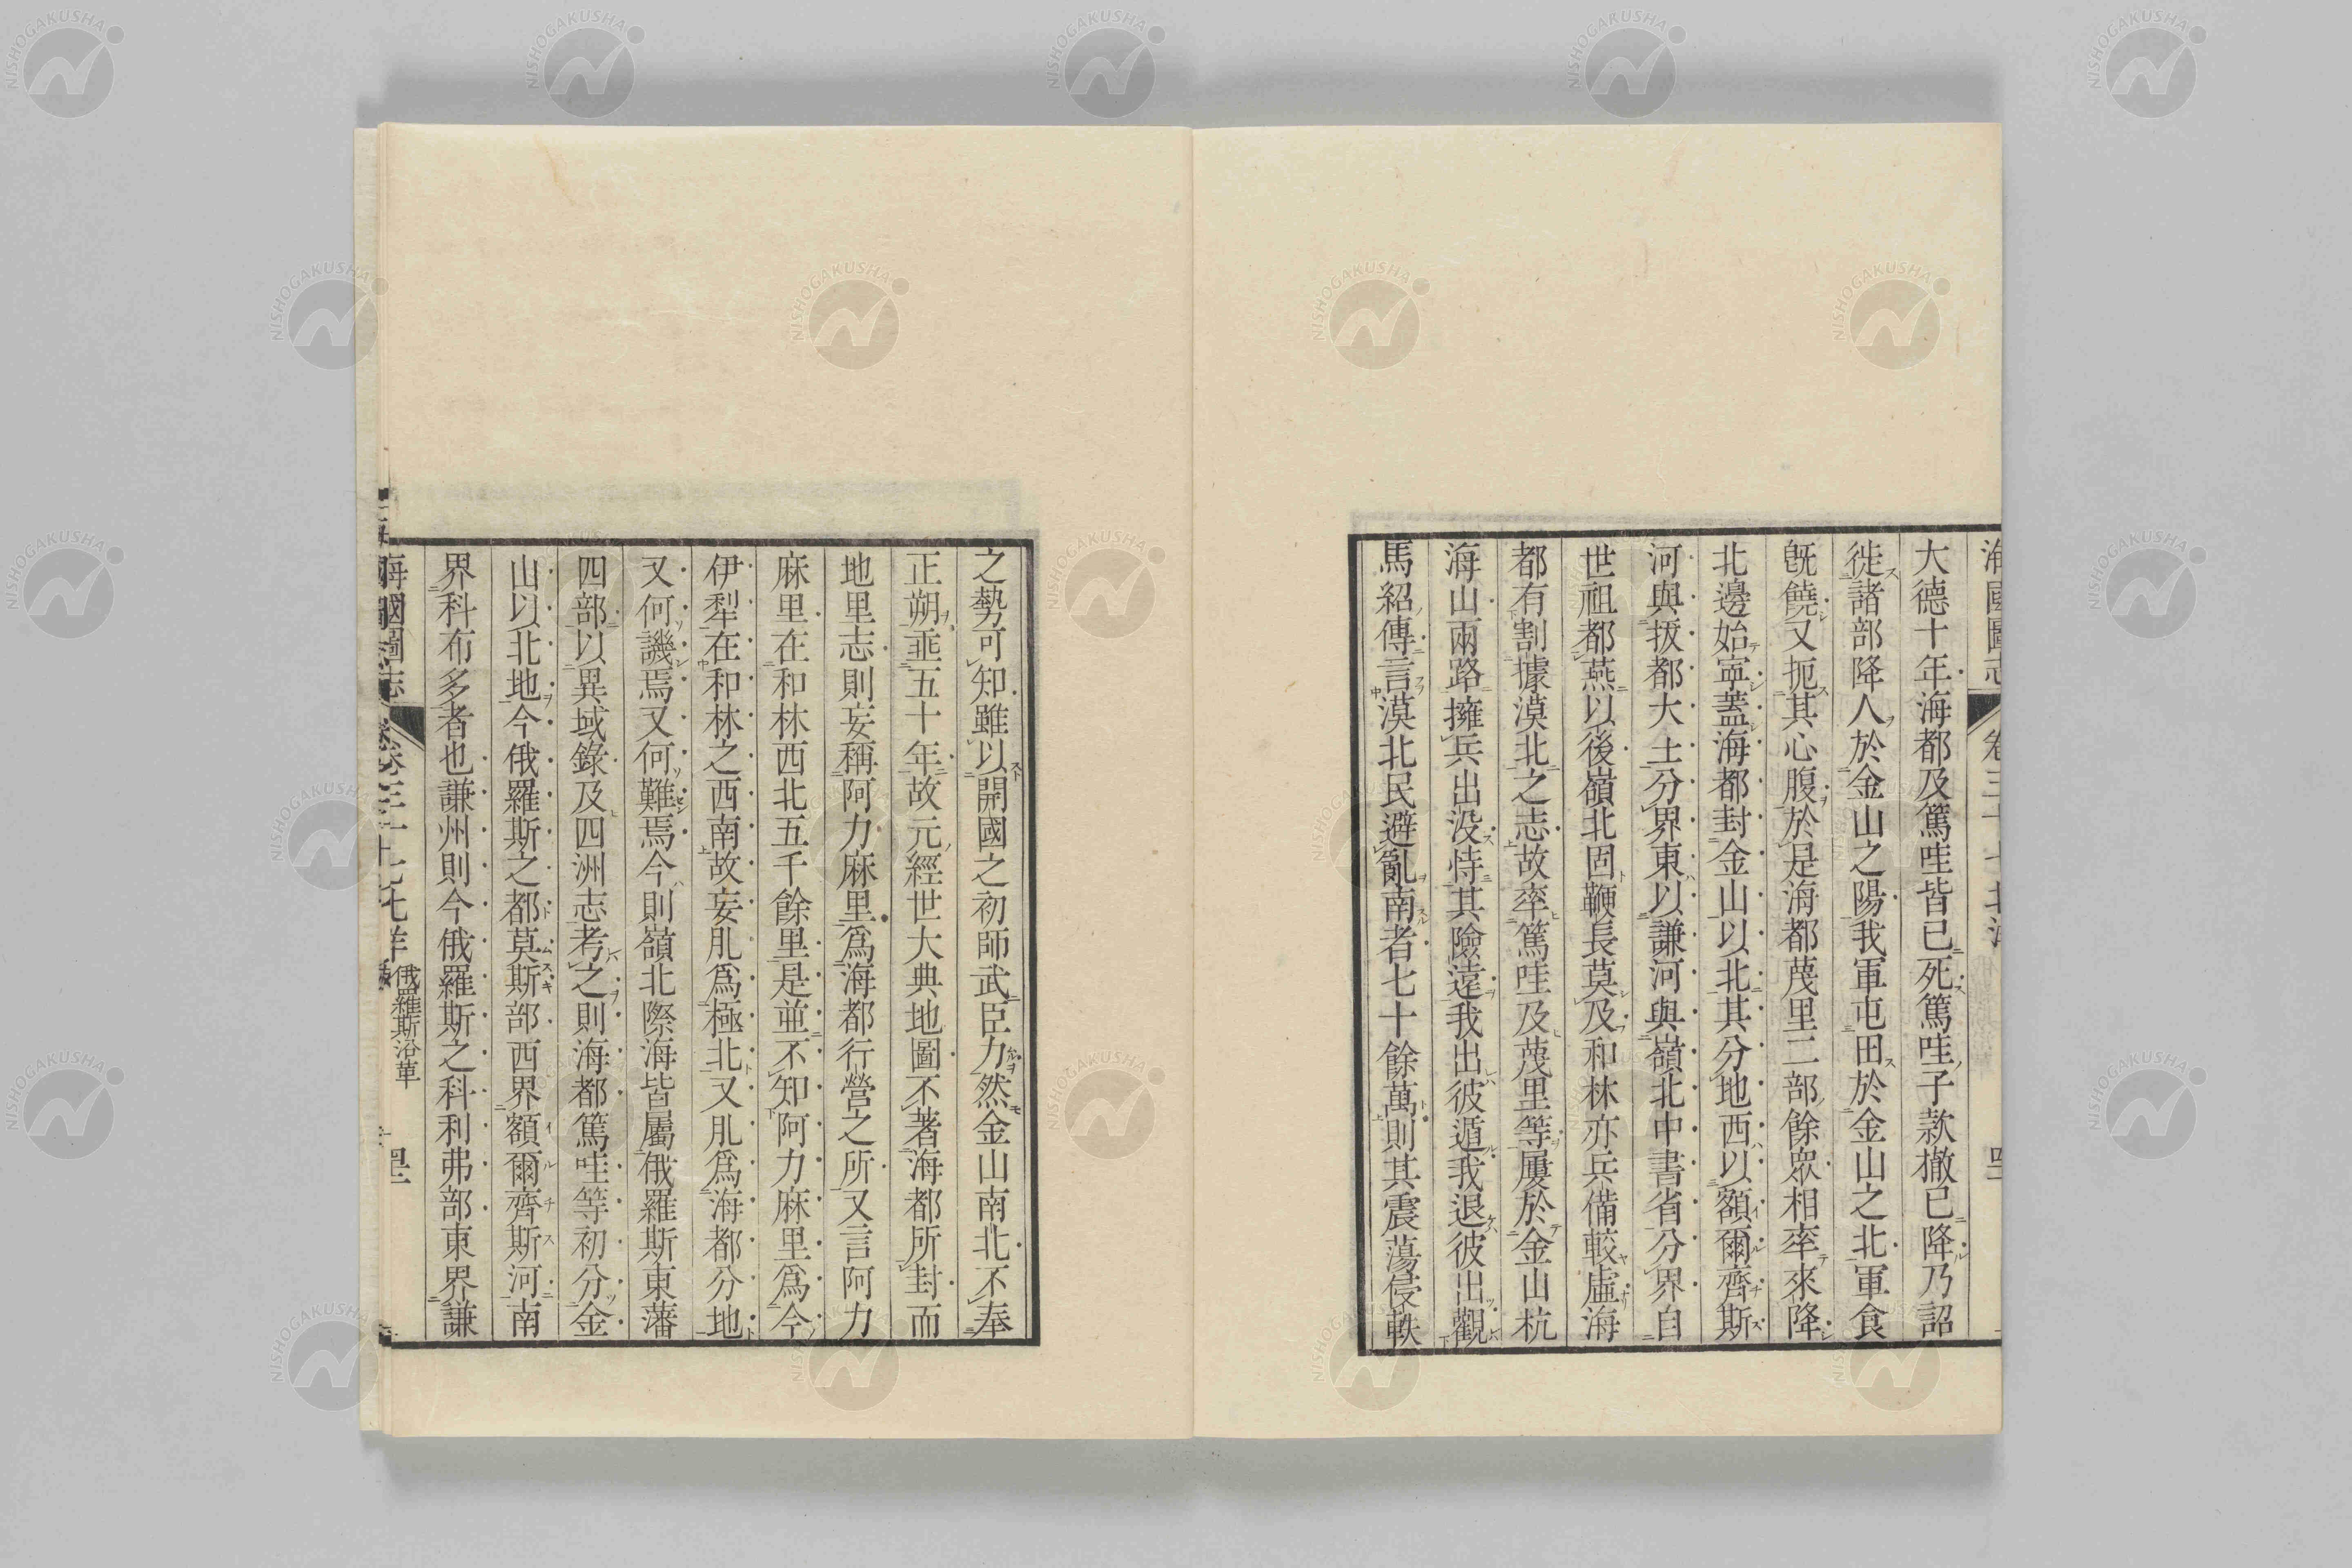 大德十年海都及篤哇皆已死篤哇子款撤已降乃詔
徙諸部降人於金山之陽我軍屯田於金山之北軍食
旣饒又扼其心腹於是海都蔑里二部餘眾相率來降
北邊始寧蓋海都封金山以北其分地西以額爾齊斯
河與拔都大土分界東以謙河與嶺北中書省分界自
世祖都燕以後嶺北固鞭長莫及和林亦兵備較虛海
都有割據漠北之志故率篤哇及蔑里等屢於金山杭
海山兩路擁兵出没恃其險遠我出彼遁我退彼出觀
馬紹傳言漠北民避亂南者七十餘萬則其震蕩侵軼
之勢可知雖以開國之初師武臣力然金山南北不奉
正朔垂五十年故元經世大典地圖不著海都所封而
地里志則妄稱阿力麻里爲海都行營之所又言阿力
麻里在和林西北五千餘里是並不知阿力麻里爲今
伊犁在和林之西南故妄肊爲極北又肊爲海都分地
又何譏焉又何難焉今則嶺北際海皆屬俄羅斯東藩
四部以異域錄及四洲志考之則海都篤哇等初分金
山以北地今俄羅斯之都莫斯部西界額爾齊斯河南
界科布多者也謙州則今俄羅斯之科利弗部東界謙
海國圖志
俄羅斯沿革
NISHOGAKUSHA